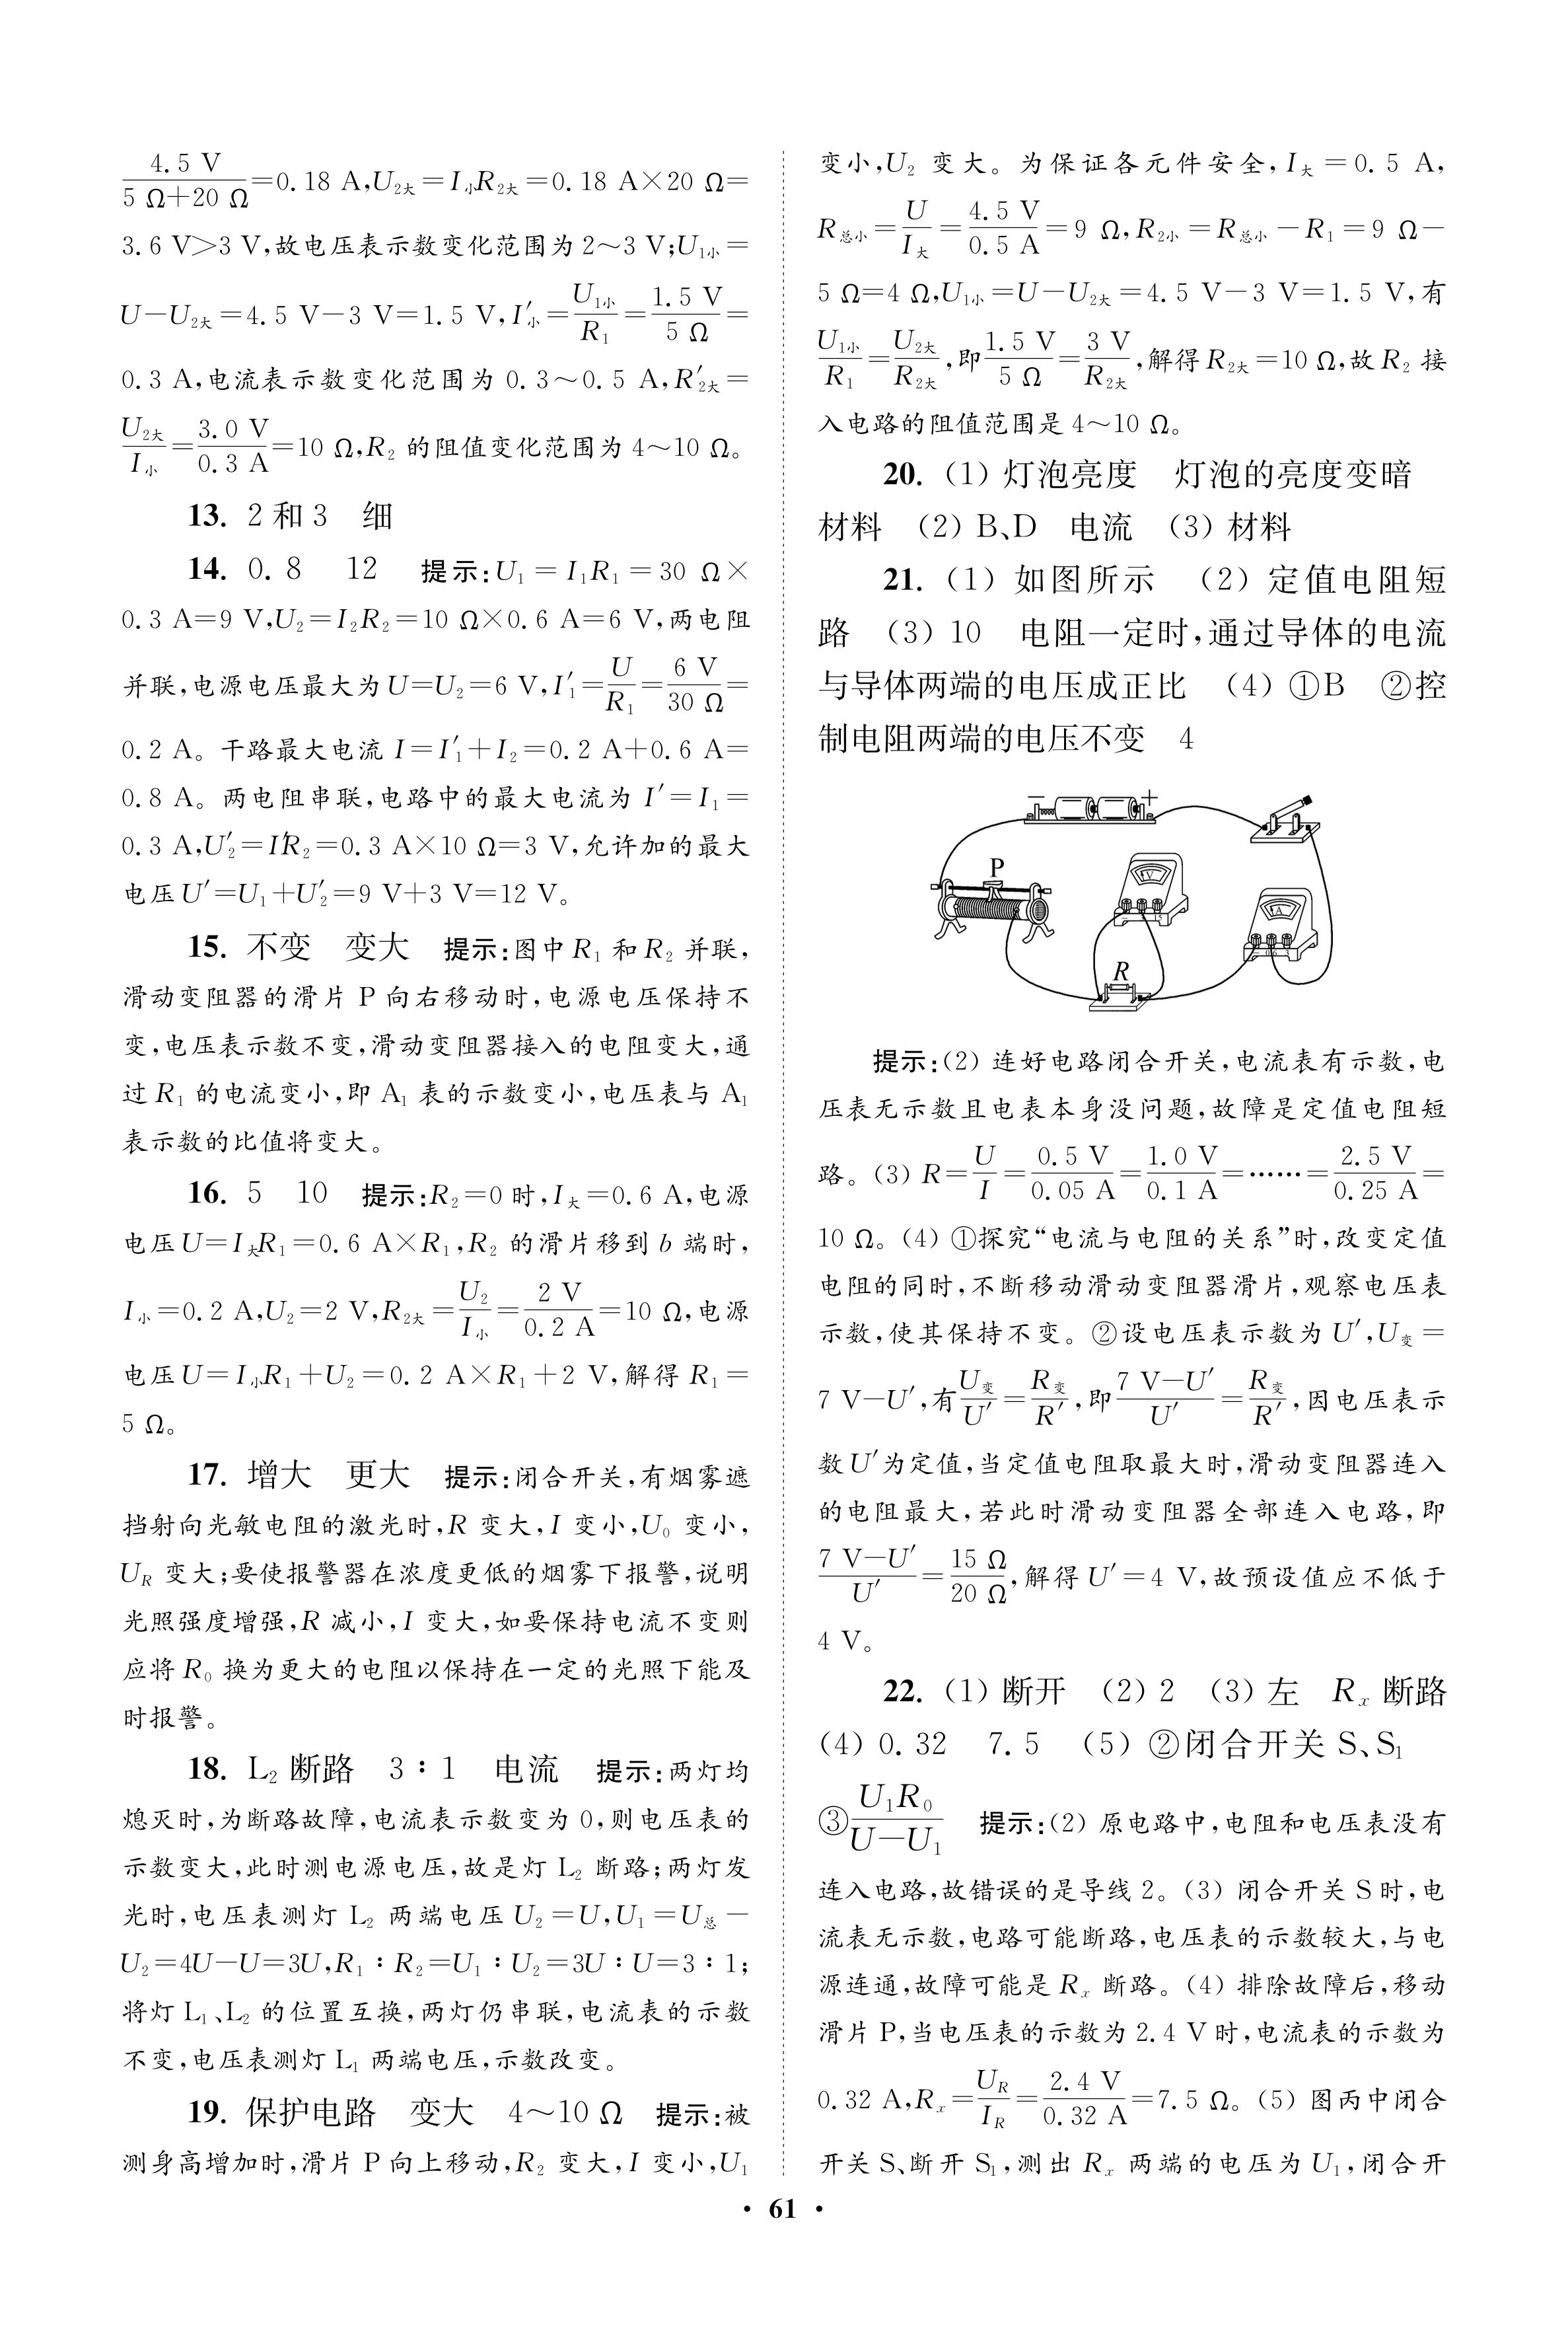 4.5 V/(5 Ω+20 Ω)=0.18 A,U₂大=I小R₂大=0.18 A×20 Ω=
3.6 V>3 V,故电压表示数变化范围为2～3 V;U₁小=
U-U₂大=4.5 V-3 V=1.5 V,I′小=U₁小/R₁=1.5 V/5 Ω=
0.3 A,电流表示数变化范围为 0.3～0.5 A,R′₂大=
U₂大/I小=3.0 V/0.3 A=10 Ω,R₂ 的阻值变化范围为 4～10 Ω。
13. 2和3 细
14. 0.8 12 提示:U₁=I₁R₁=30 Ω×
0.3 A=9 V,U₂=I₂R₂=10 Ω×0.6 A=6 V,两电阻
并联,电源电压最大为U=U₂=6 V,I′₁=U/R₁=6 V/30 Ω=
0.2 A。干路最大电流 I=I′₁+I₂=0.2 A+0.6 A=
0.8 A。两电阻串联,电路中的最大电流为 I′=I₁=
0.3 A,U′₂=I′R₂=0.3 A×10 Ω=3 V,允许加的最大
电压U′=U₁+U′₂=9 V+3 V=12 V。
15. 不变 变大 提示:图中R₁ 和R₂ 并联,
滑动变阻器的滑片 P 向右移动时,电源电压保持不
变,电压表示数不变,滑动变阻器接入的电阻变大,通
过 R₁ 的电流变小,即 A₁ 表的示数变小,电压表与 A₁
表示数的比值将变大。
16. 5 10 提示:R₂=0时,I大=0.6 A,电源
电压U=I大R₁=0.6 A×R₁,R₂ 的滑片移到 b 端时,
I小=0.2 A,U₂=2 V,R₂大=U₂/I小=2 V/0.2 A=10 Ω,电源
电压U=I小R₁+U₂=0.2 A×R₁+2 V,解得 R₁=
5 Ω。
17. 增大 更大 提示:闭合开关,有烟雾遮
挡射向光敏电阻的激光时,R 变大,I 变小,U₀ 变小,
U_R 变大;要使报警器在浓度更低的烟雾下报警,说明
光照强度增强,R 减小,I 变大,如要保持电流不变则
应将 R₀ 换为更大的电阻以保持在一定的光照下能及
时报警。
18. L₂ 断路 3∶1 电流 提示:两灯均
熄灭时,为断路故障,电流表示数变为 0,则电压表的
示数变大,此时测电源电压,故是灯 L₂ 断路;两灯发
光时,电压表测灯 L₂ 两端电压 U₂=U,U₁=U总-
U₂=4U-U=3U,R₁∶R₂=U₁∶U₂=3U∶U=3∶1;
将灯 L₁、L₂ 的位置互换,两灯仍串联,电流表的示数
不变,电压表测灯 L₁ 两端电压,示数改变。
19. 保护电路 变大 4～10 Ω 提示:被
测身高增加时,滑片 P 向上移动,R₂ 变大,I 变小,U₁
变小,U₂ 变大。为保证各元件安全,I大=0.5 A,
R总小=U/I大=4.5 V/0.5 A=9 Ω,R₂小=R总小-R₁=9 Ω-
5 Ω=4 Ω,U₁小=U-U₂大=4.5 V-3 V=1.5 V,有
U₁小/R₁=U₂大/R₂大,即1.5 V/5 Ω=3 V/R₂大,解得R₂大=10 Ω,故R₂ 接
入电路的阻值范围是 4～10 Ω。
20. (1) 灯泡亮度 灯泡的亮度变暗
材料 (2) B、D 电流 (3) 材料
21. (1) 如图所示 (2) 定值电阻短
路 (3) 10 电阻一定时,通过导体的电流
与导体两端的电压成正比 (4) ①B ②控
制电阻两端的电压不变 4
- +
P
V
A
R
提示:(2) 连好电路闭合开关,电流表有示数,电
压表无示数且电表本身没问题,故障是定值电阻短
路。(3) R=U/I=0.5 V/0.05 A=1.0 V/0.1 A=……=2.5 V/0.25 A=
10 Ω。(4) ①探究“电流与电阻的关系”时,改变定值
电阻的同时,不断移动滑动变阻器滑片,观察电压表
示数,使其保持不变。②设电压表示数为 U′,U变=
7 V-U′,有U变/U′=R变/R′,即(7 V-U′)/U′=R变/R′,因电压表示
数U′为定值,当定值电阻取最大时,滑动变阻器连入
的电阻最大,若此时滑动变阻器全部连入电路,即
(7 V-U′)/U′=15 Ω/20 Ω,解得 U′=4 V,故预设值应不低于
4 V。
22. (1) 断开 (2) 2 (3) 左 Rₓ 断路
(4) 0.32 7.5 (5) ②闭合开关 S、S₁
③U₁R₀/(U-U₁) 提示:(2) 原电路中,电阻和电压表没有
连入电路,故错误的是导线 2。(3) 闭合开关 S 时,电
流表无示数,电路可能断路,电压表的示数较大,与电
源连通,故障可能是 Rₓ 断路。(4) 排除故障后,移动
滑片 P,当电压表的示数为 2.4 V 时,电流表的示数为
0.32 A,Rₓ=U_R/I_R=2.4 V/0.32 A=7.5 Ω。(5) 图丙中闭合
开关 S、断开 S₁,测出 Rₓ 两端的电压为 U₁,闭合开
· 61 ·